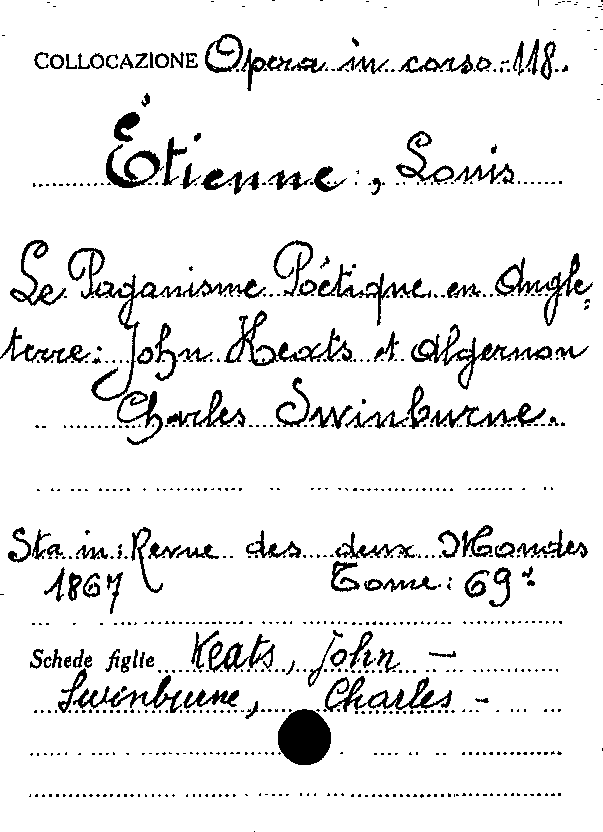 COLLOCAZIONE Opera in corso-118.
Étienne, Louis
Le Paganisme Poétique en Angle=
terre: John Keats et Algernon
Charles Swinburne.
Sta in: Revue des deux Mondes
1867 Tome: 69º
Schede figlie Keats, John —
Swinburne, Charles -